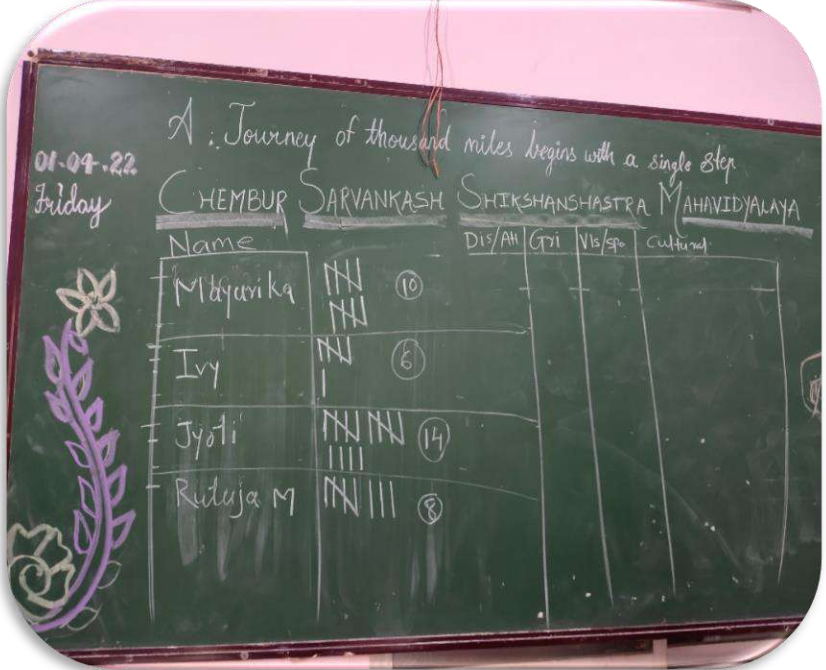 A : Journey of thousand miles begins with a single step
01-04-22
Friday
CHEMBUR SARVANKASH SHIKSHANSHASTRA MAHAVIDYALAYA
Name Dis/Att Gri Vis/spo Cultural
Mayurika 10
Ivy 6
Jyoti 14
Rutuja M 8